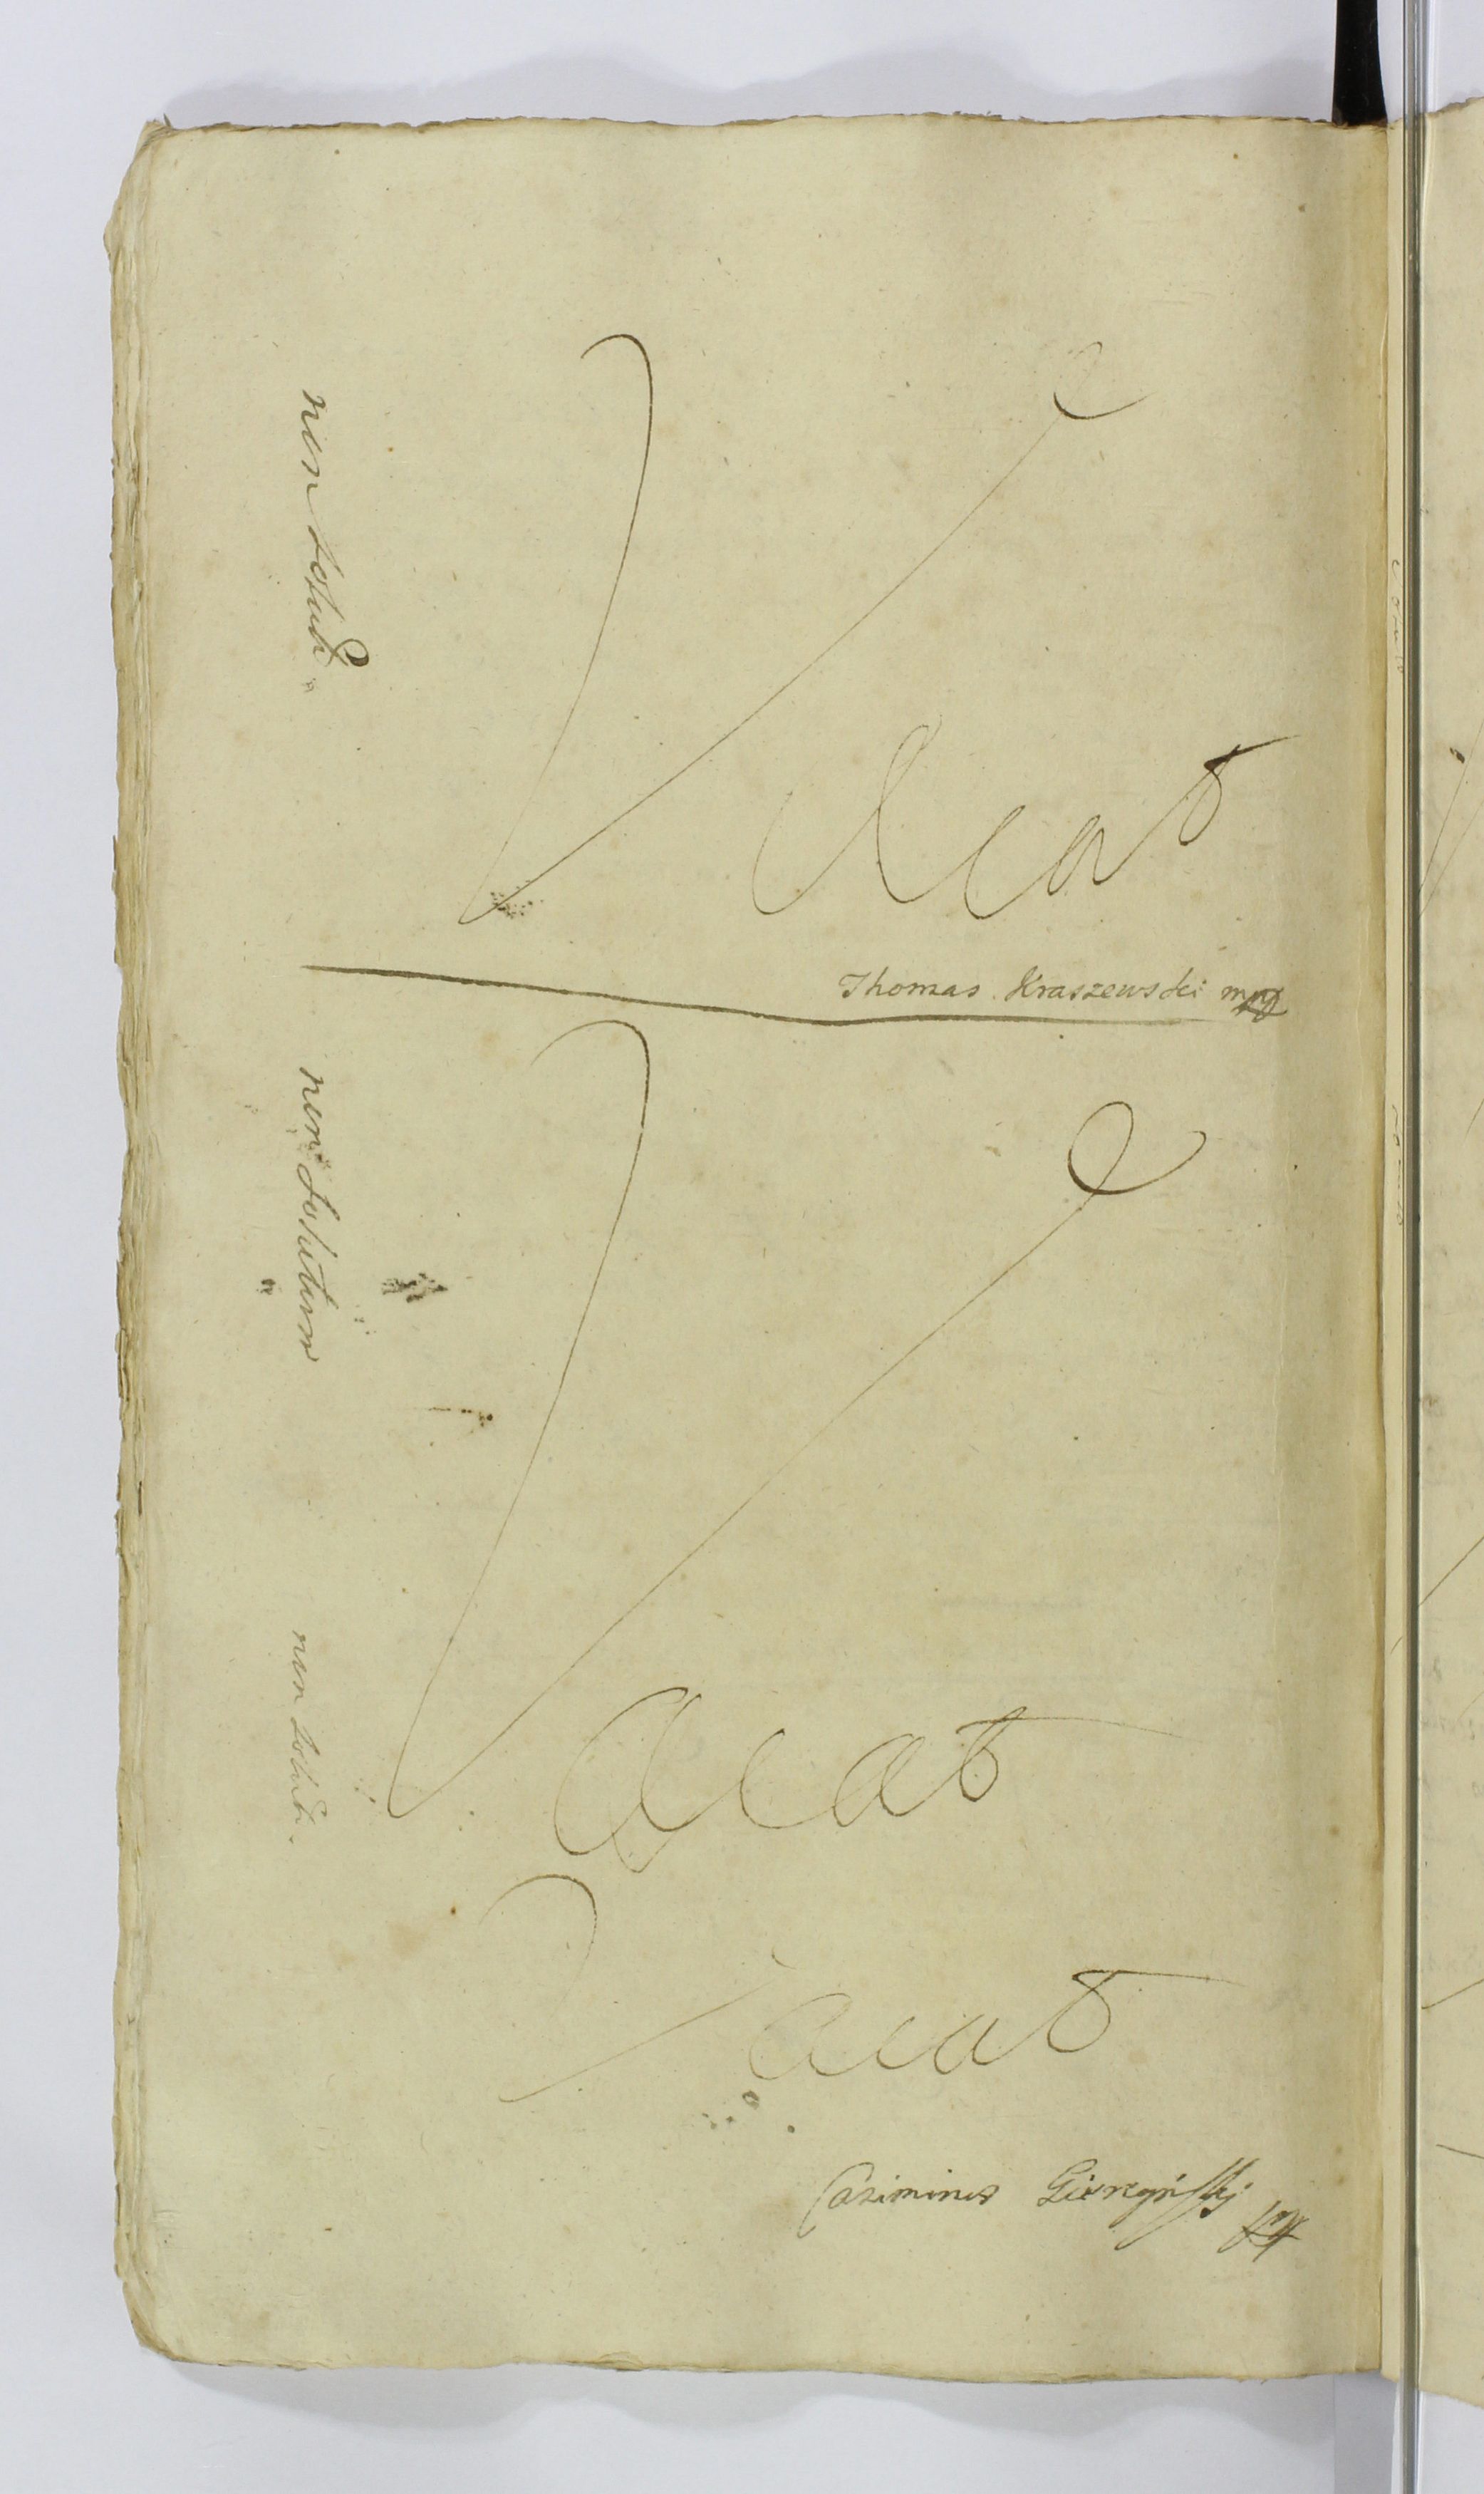 non solut.
Vacat
Thomas Kraszewski mpp
non solutum
Vacat
non solut.
Vacat
Casimirus